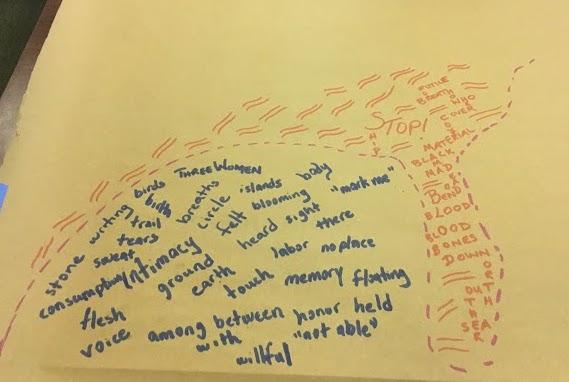 THREE WOMEN
stone writing birds
birth
trail breaths circle islands body
sweat tears felt blooming "mark me"
consumption intimacy heard sight
ground labor there
flesh earth no place
touch memory floating
voice among between honor held
with "not able"
willful
STOP!
FUTILE
BREATH
WHO
COVER
HIP
MATERIAL
BLACK
MAD
BEND
BLOOD
BLOOD
BONES
DOWN
NORTH
OUT
THE
SEA